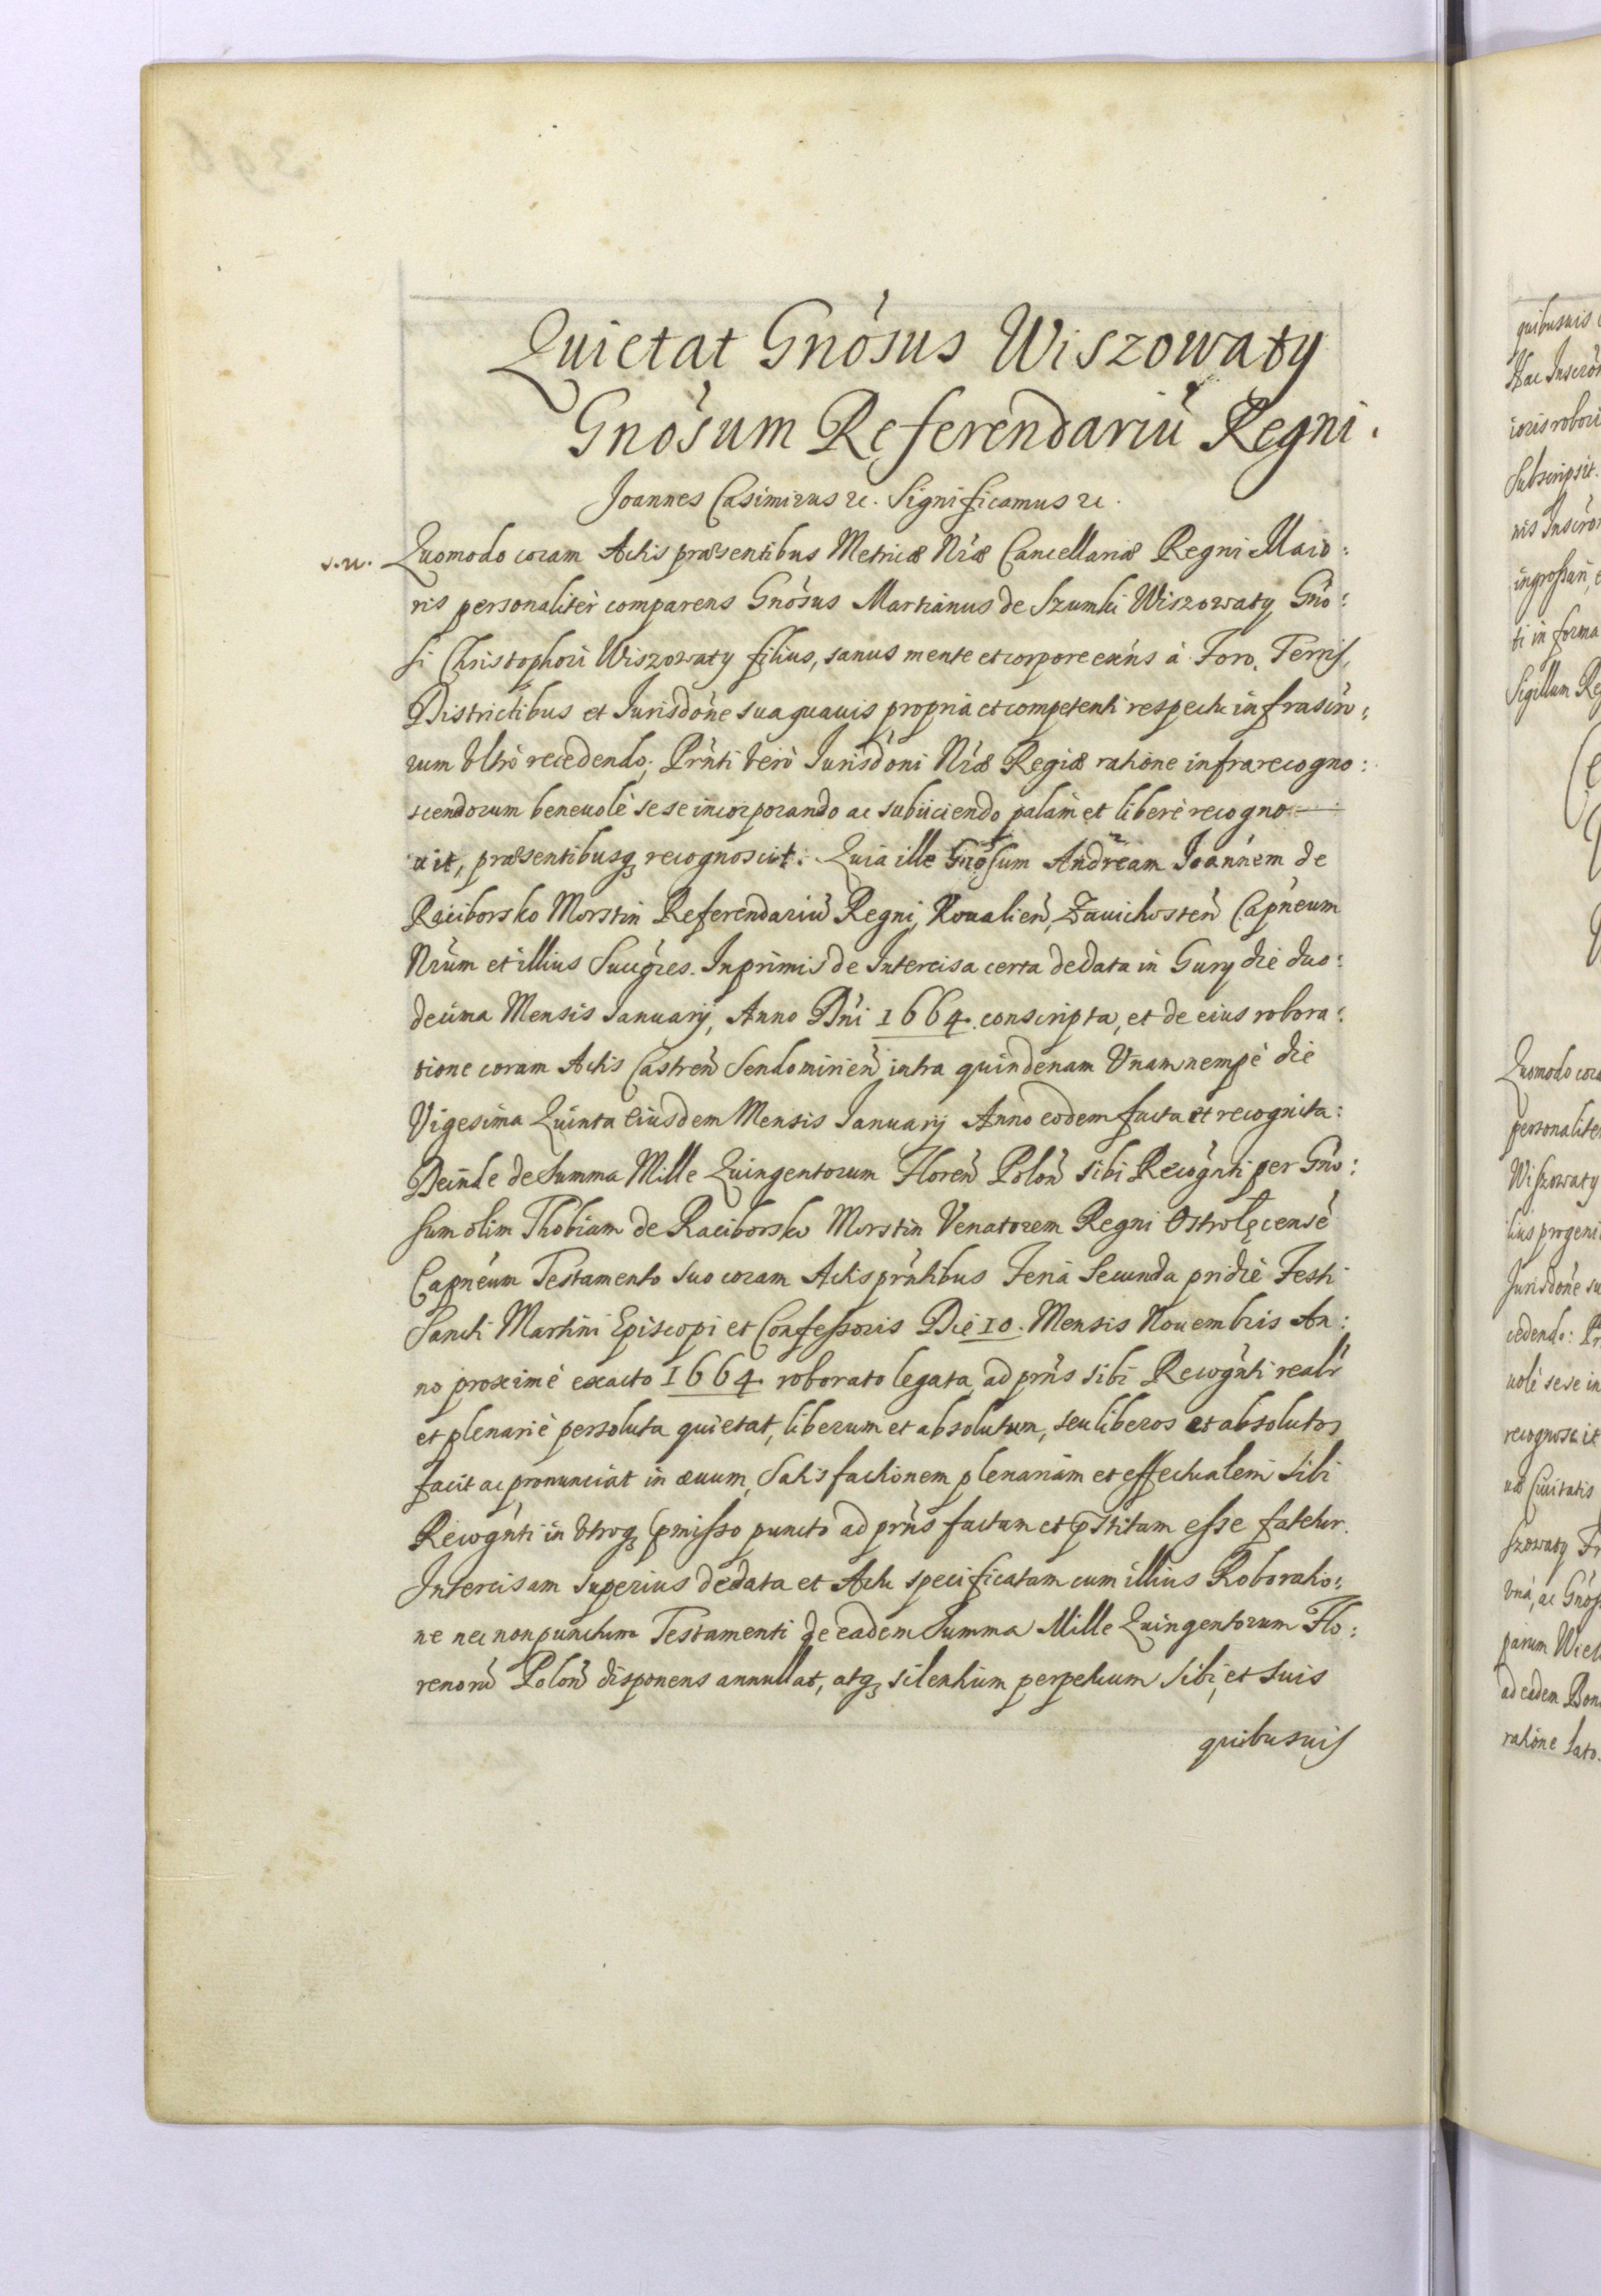 Quietat Gnosus Wiszowaty
Gnosum Referendariu Regni.
Joannes Casimirus etc. Significamus etc.
s. u. Quomodo coram Actis præsentibus Metricæ Nræ Cancellariæ Regni Maio:
ris personaliter comparens Gnosus Martianus de Szumki Wiszowaty Gno:
si Christophori Wiszowaty filius, sanus mente et corpore exñs à Foro, Terris,
Districtibus et Jurisdõne sua quavis propria et competenti respectu infrascrõ:
rum Vltrò recedendo; Prñti verò Jurisdõni Nræ Regiæ ratione infrarecogno:
scendorum benevolè sese incorporando ac subijciendo palàm et liberè recogno
uit, præsentibusq recognoscit: Quia ille Gnõsum Andream Joannem de
Raciborsko Morstin Referendariũ Regni, Koualien, Zauichosten Capneum
Nrum et illius Succõres. Inprimis de Intercisa certa dedata in Gury die duo:
decima Mensis Januarij, Anno Dñi 1664. conscripta, et de eius robora:
tione coram Actis Castreñ Sendomirieñ intra quindenam Vnam nempè die
Vigesima Quinta Eiusdem Mensis Januarij Anno eodem facta et recognita:
Deinde de Summa Mille Quingentorum Floreñ Poloñ sibi Recognti per Gno:
sum olim Thobiam de Raciborsko Morstin Venatorem Regni Ostrolęcensẽ
Capneum Testamento suo coram Actis prñtibus Feria Secunda pridiè Festi
Sancti Martini Episcopi et Confessoris Die 10. Mensis Nouembris An:
no proximè exacto 1664. roborato legata, ad prñs sibi Recognti realr
et plenariè persoluta quietat, liberum et absolutum, seu liberos et absolutos
facit ac pronunciat in æuum, Satisfactionem plenariam et effectualem sibi
Recognti in Vtroq pmisso puncto ad prñs factam et pstitam esse fatetur.
Intercisam superius dedata et Actu specificatam cum illius Roboratio:
ne nec non punctum Testamenti de eadem Summa Mille Quingentorum Flo:
renorũ Poloñ disponens annullat, atq silentium perpetuum sibi, et suis
quibusuis